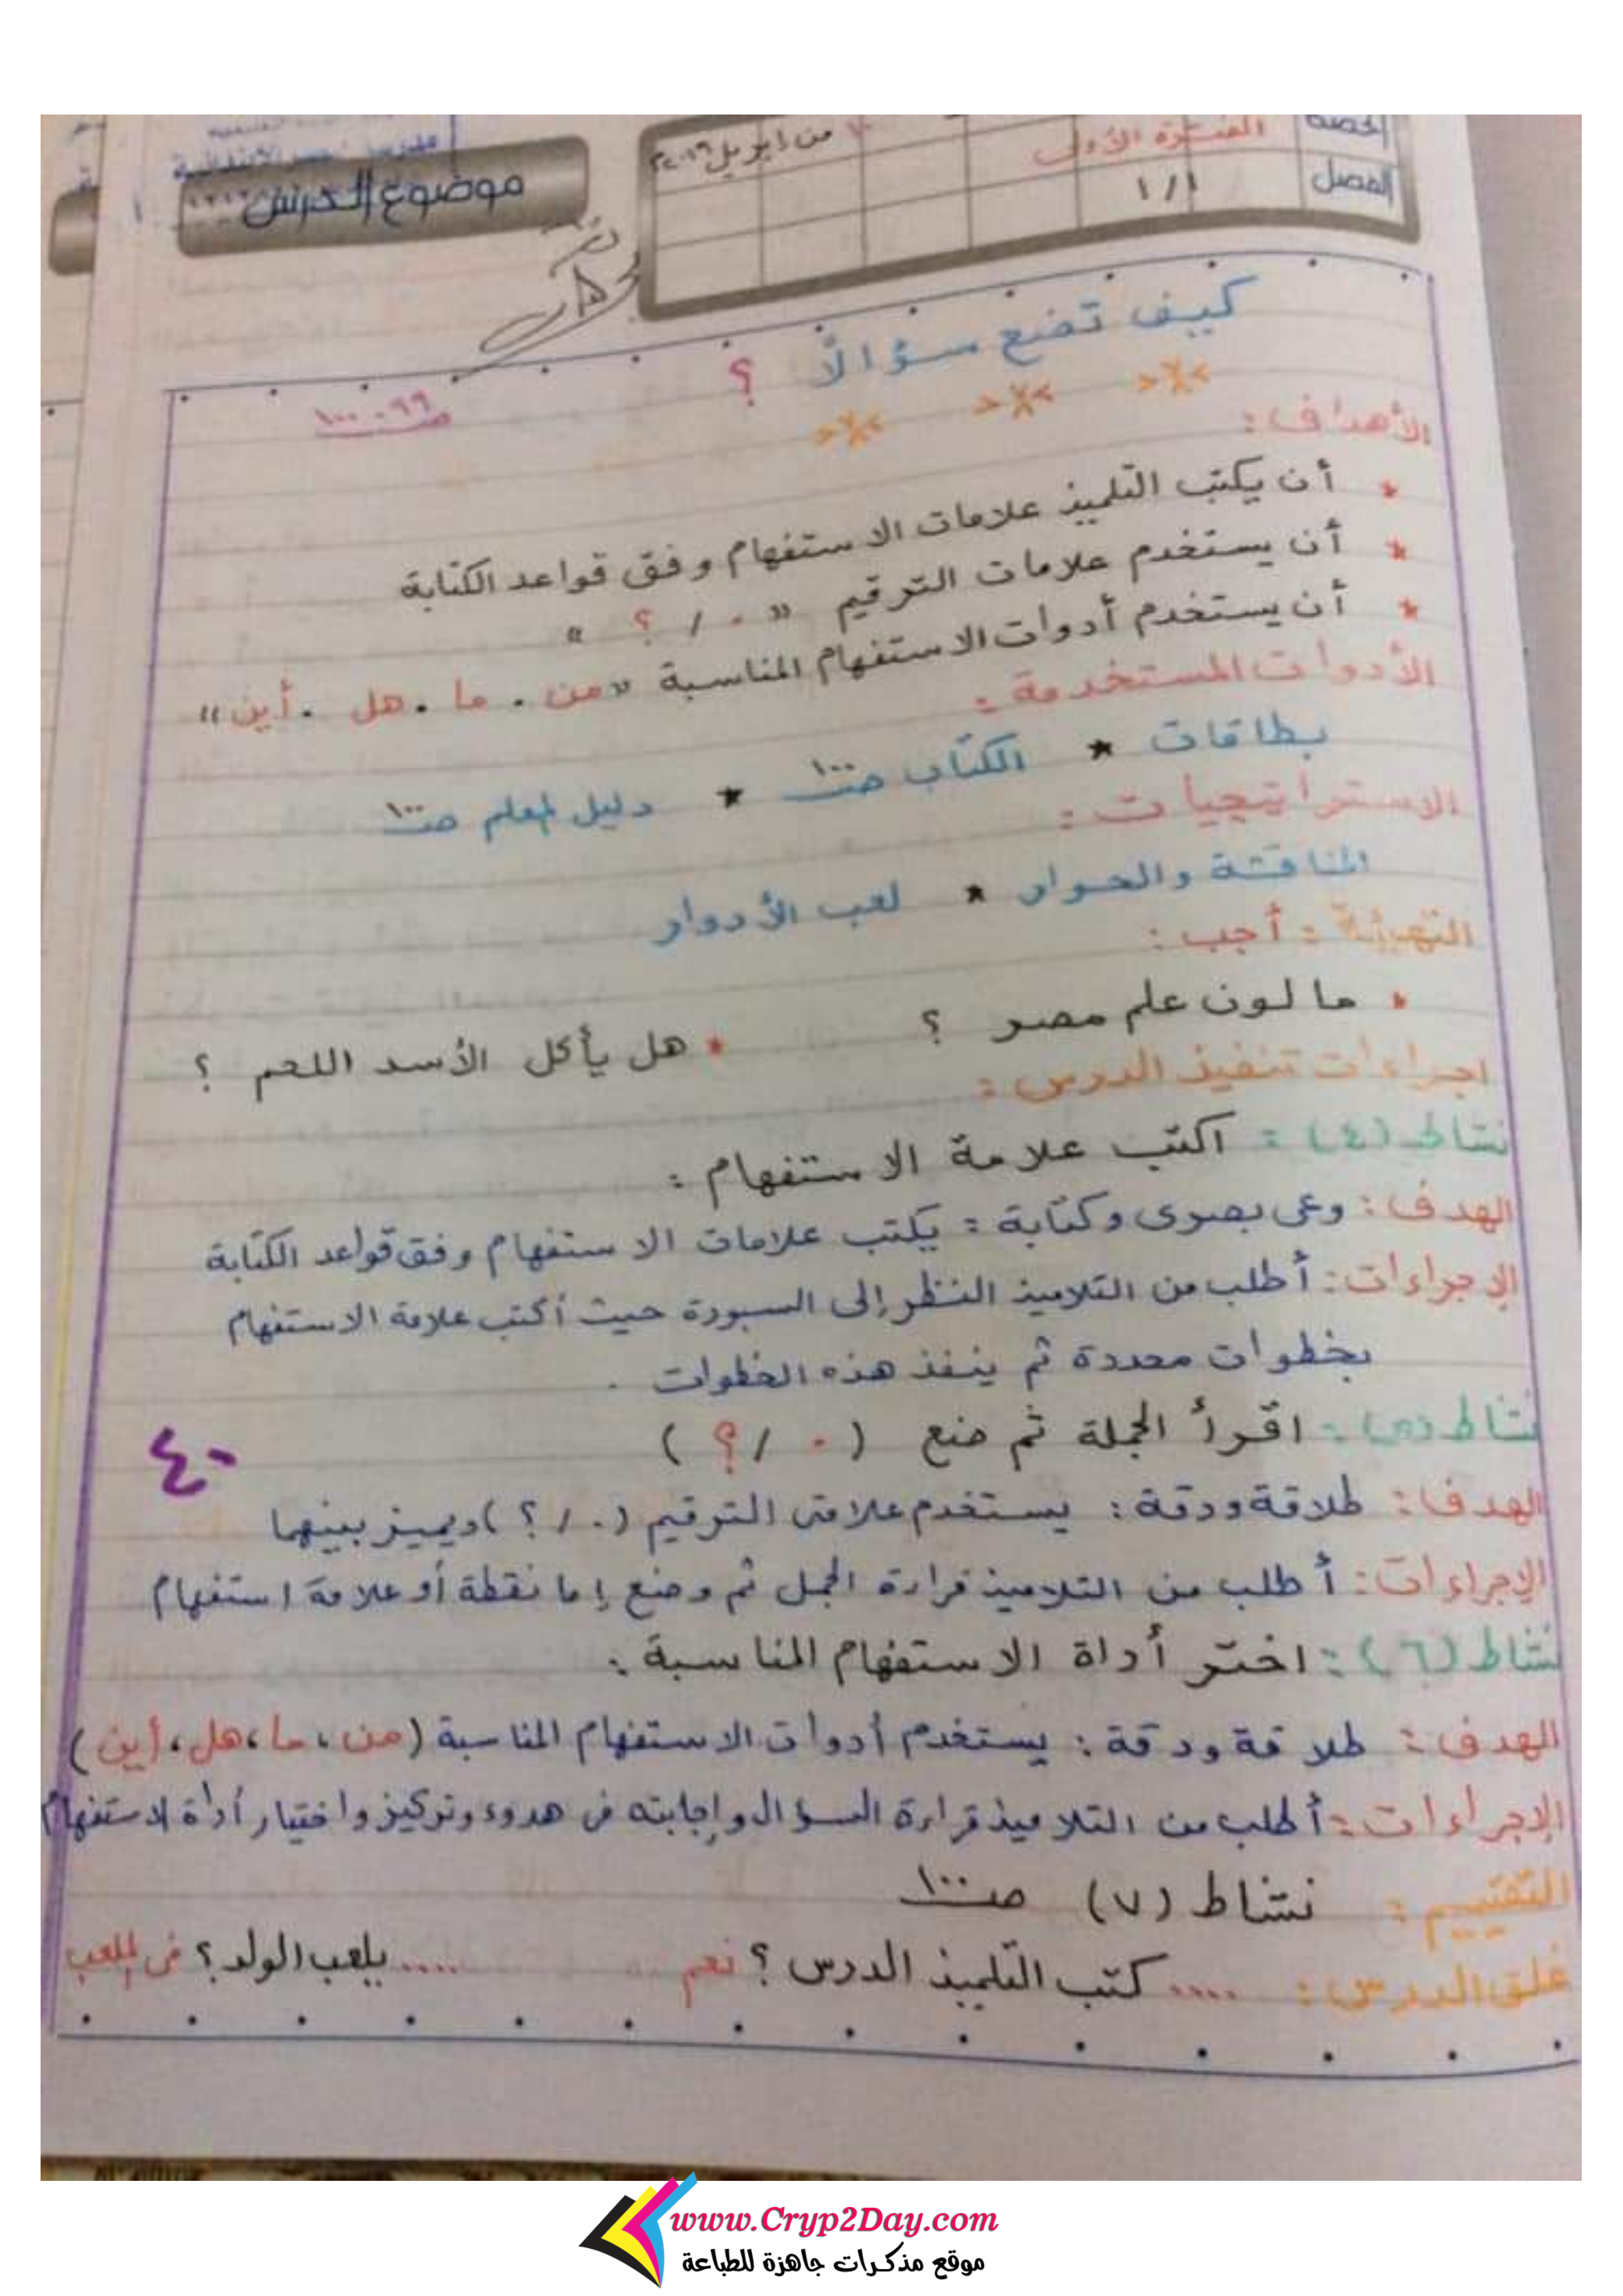 الحصة
الفترة الأولى
الفصل
١/١
موضوع الدرس
كيف تضع سؤالًا ؟
صـ ٩٩ - ١٠٠
الأهداف :
* أن يكتب التلميذ علامات الاستفهام وفق قواعد الكتابة
* أن يستخدم علامات الترقيم « . / ؟ »
* أن يستخدم أدوات الاستفهام المناسبة «من . ما . هل . أين»
الأدوات المستخدمة :
بطاقات * الكتاب صـ ١٠٠ * دليل المعلم صـ ١٠٠
الاستراتيجيات :
المناقشة والحوار * لعب الأدوار
التهيئة : أجب :
* ما لون علم مصر ؟ * هل يأكل الأسد اللحم ؟
اجراءات تنفيذ الدرس :
نشاط (٤) : اكتب علامة الاستفهام :
الهدف : وعى بصرى وكتابة : يكتب علامات الاستفهام وفق قواعد الكتابة
الإجراءات : أطلب من التلاميذ النظر إلى السبورة حيث أكتب علامة الاستفهام
بخطوات محددة ثم ينفذ هذه الخطوات .
نشاط (٥) : اقرأ الجملة ثم ضع ( . / ؟ )
٤٠
الهدف : طلاقة ودقة : يستخدم علامتى الترقيم ( . / ؟ ) ويميز بينهما
الإجراءات : أطلب من التلاميذ قراءة الجمل ثم وضع إما نقطة أو علامة استفهام
نشاط (٦) : اختر أداة الاستفهام المناسبة :
الهدف : طلاقة ودقة : يستخدم أدوات الاستفهام المناسبة (من ، ما ، هل ، أين)
الإجراءات : أطلب من التلاميذ قراءة السؤال وإجابته فى هدوء وتركيز واختيار أداة الاستفهام
التقييم : نشاط (٧) صـ ١٠٠
غلق الدرس : .... كتب التلميذ الدرس ؟ نعم .... يلعب الولد ؟ فى الملعب
www.Cryp2Day.com
موقع مذكرات جاهزة للطباعة